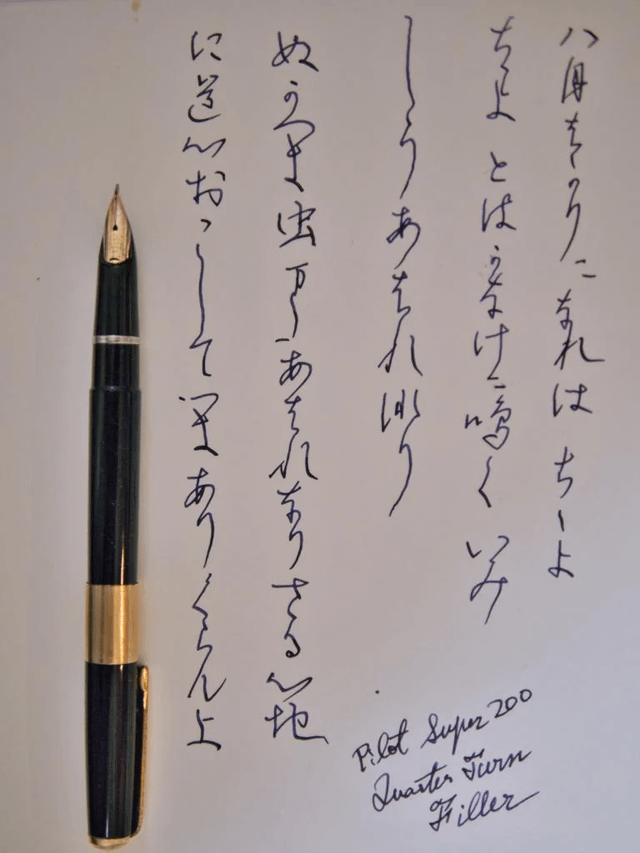 八月はかりになれは ちゝよ
ちゝよ とはかなけに鳴く いみ
しうあはれなり
ぬかつき虫またあはれなりさる心地
に道心おこしてつきありくらんよ
Pilot Super 200
Quarter Turn
Filler